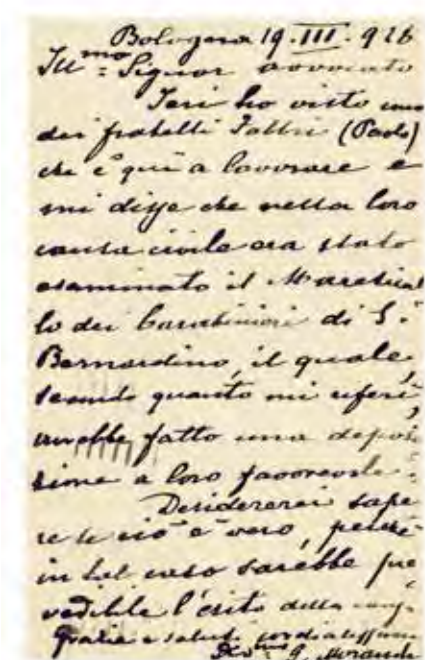 Bologna 19.III.926
Ill.mo Signor avvocato
Ieri ho visto uno
dei fratelli Fabbri (Paolo)
che è qui a lavorare e
mi disse che nella loro
causa civile era stato
esaminato il Marescial
lo dei Carabinieri di S.
Bernardino, il quale,
secondo quanto mi riferì,
avrebbe fatto una deposi
zione a loro favorevole.
Desidererei sape
re se ciò è vero, perchè
in tal caso sarebbe pre
vedibile l'esito della causa.
Grazie e saluti cordialissimi